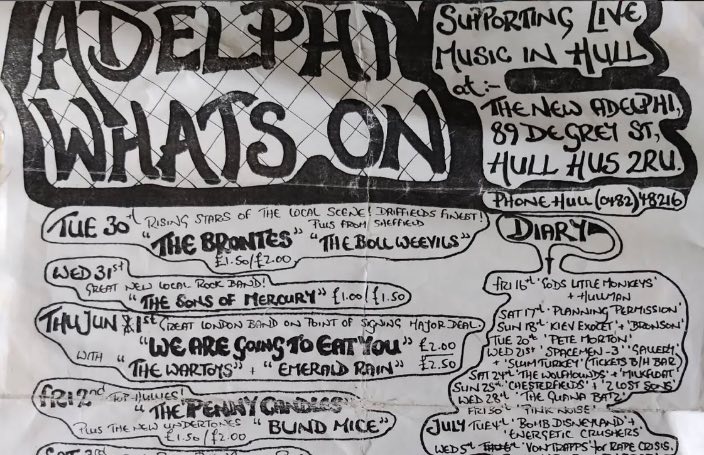 ADELPHI
WHATS ON
SUPPORTING LIVE
MUSIC IN HULL
at:-
THE NEW ADELPHI,
89 DE GREY ST,
HULL HU5 2RU.
PHONE HULL (0482) 48216
TUE 30th RISING STARS OF THE LOCAL SCENE! DRIFFIELDS FINEST!
PLUS FROM SHEFFIELD
"THE BRONTES" "THE BOLL WEEVILS"
£1.50/£2.00
WED 31st
GREAT NEW LOCAL ROCK BAND!
"THE SONS OF MERCURY" £1.00/£1.50
THU JUN 1st GREAT LONDON BAND ON POINT OF SIGNING MAJOR DEAL.
"WE ARE GOING TO EAT YOU" £2.00
£2.50
WITH "THE WARTOYS" + "EMERALD RAIN"
FRI 2nd TOP HULLIES!
"THE PENNY CANDLES"
PLUS THE NEW UNDERTONES "BLIND MICE"
£1.50/£2.00
SAT 3rd
DIARY
FRI 16th 'GODS LITTLE MONKEYS'
+ HULLMAN
SAT 17th 'PLANNING PERMISSION'
SUN 18th 'KIEV EXOCET' + 'BRONSON'
TUE 20th 'PETE MORTON'
WED 21st 'SPACEMEN-3' 'GALLERY'
+ 'SLUM TURKEY' (TICKETS B/H BAR)
SAT 24th 'THE WOLFHOUNDS' + 'MILKFLOAT'
SUN 25th 'CHESTERFIELDS' + '2 LOST SONS'
WED 28th 'THE GUANA BATZ'
FRI 30th 'PINK NOISE'
JULY TUE 4th 'BOMB DISNEYLAND' +
'ENERGETIC CRUSHERS'
WED 5th 'VON TRAPPS' for RAPE CRISIS.